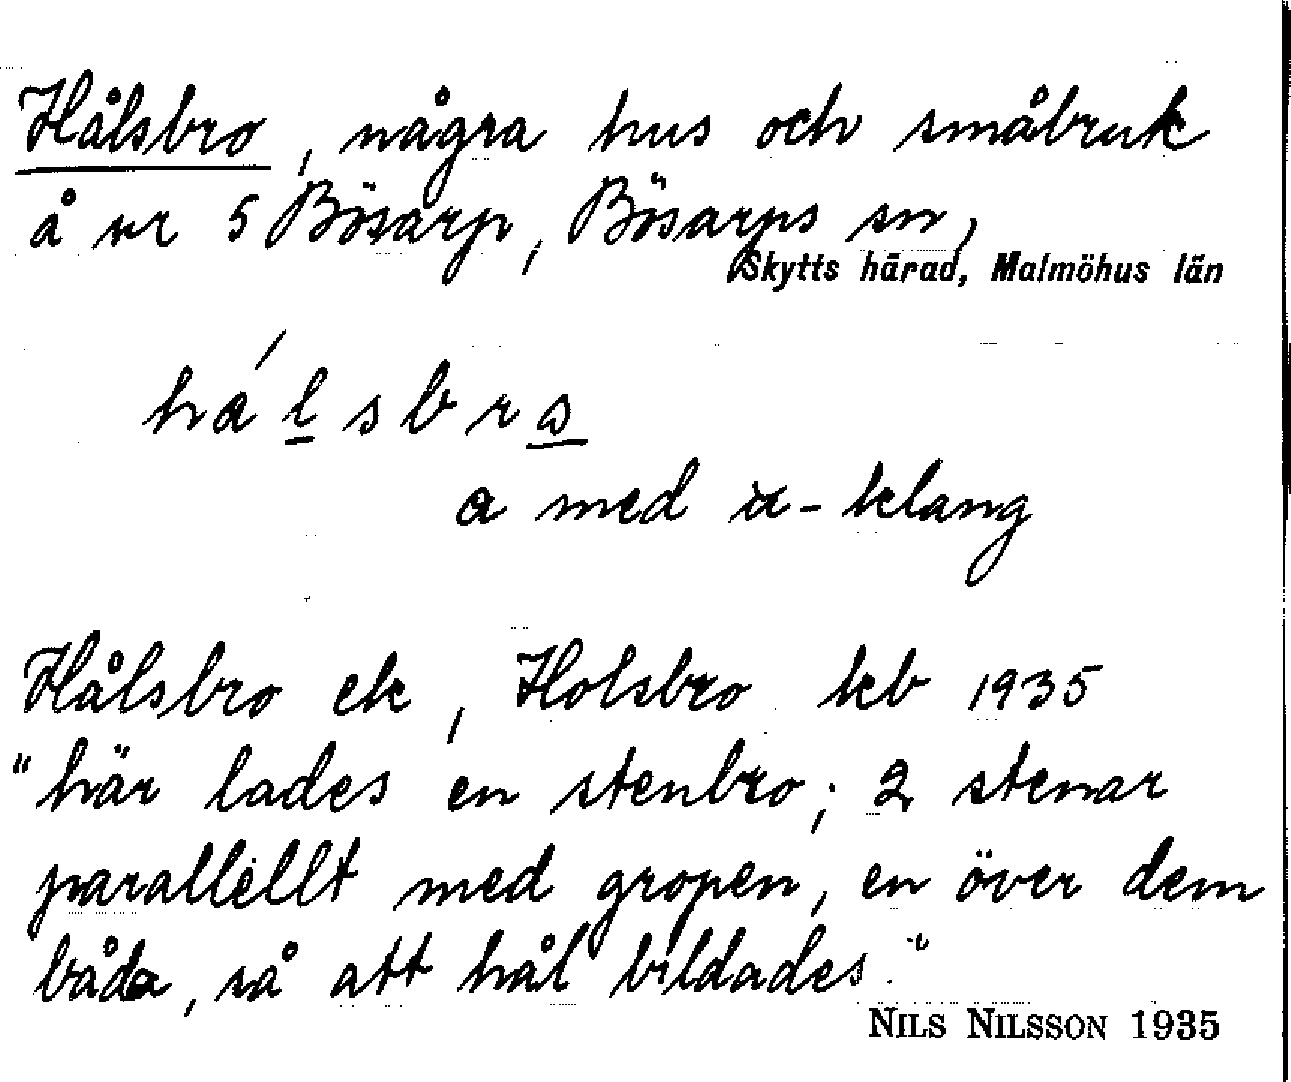 Hålsbro, några hus och småbruk
å nr 5 Bösarp, Bösarps sn,
Skytts härad, Malmöhus län
a med u-klang
Hålsbro ek, Holsbro kb 1935
"här lades en stenbro; 2 stenar
parallellt med gropen, en över dem
båda, så att hål bildades."
NILS NILSSON 1935